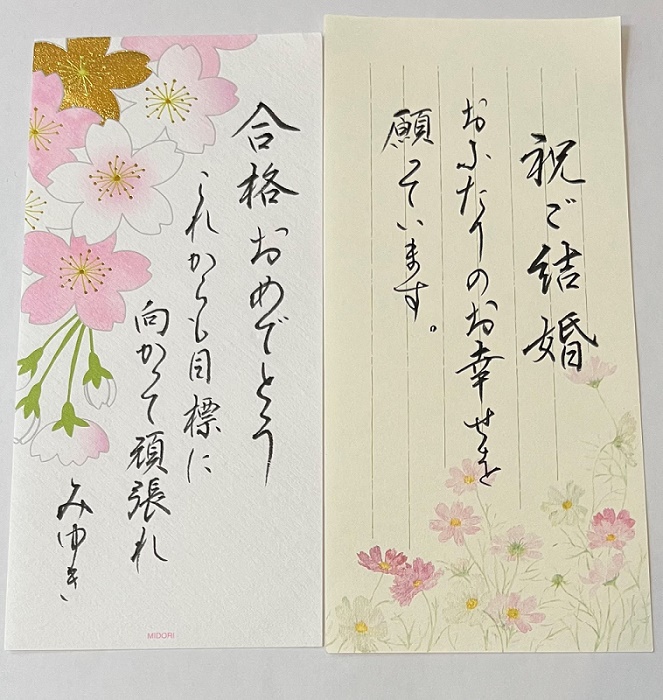 合格おめでとう
これからも目標に
向かって頑張れ
みゆき
MIDORI
祝ご結婚
おふたりのお幸せを
願っています。